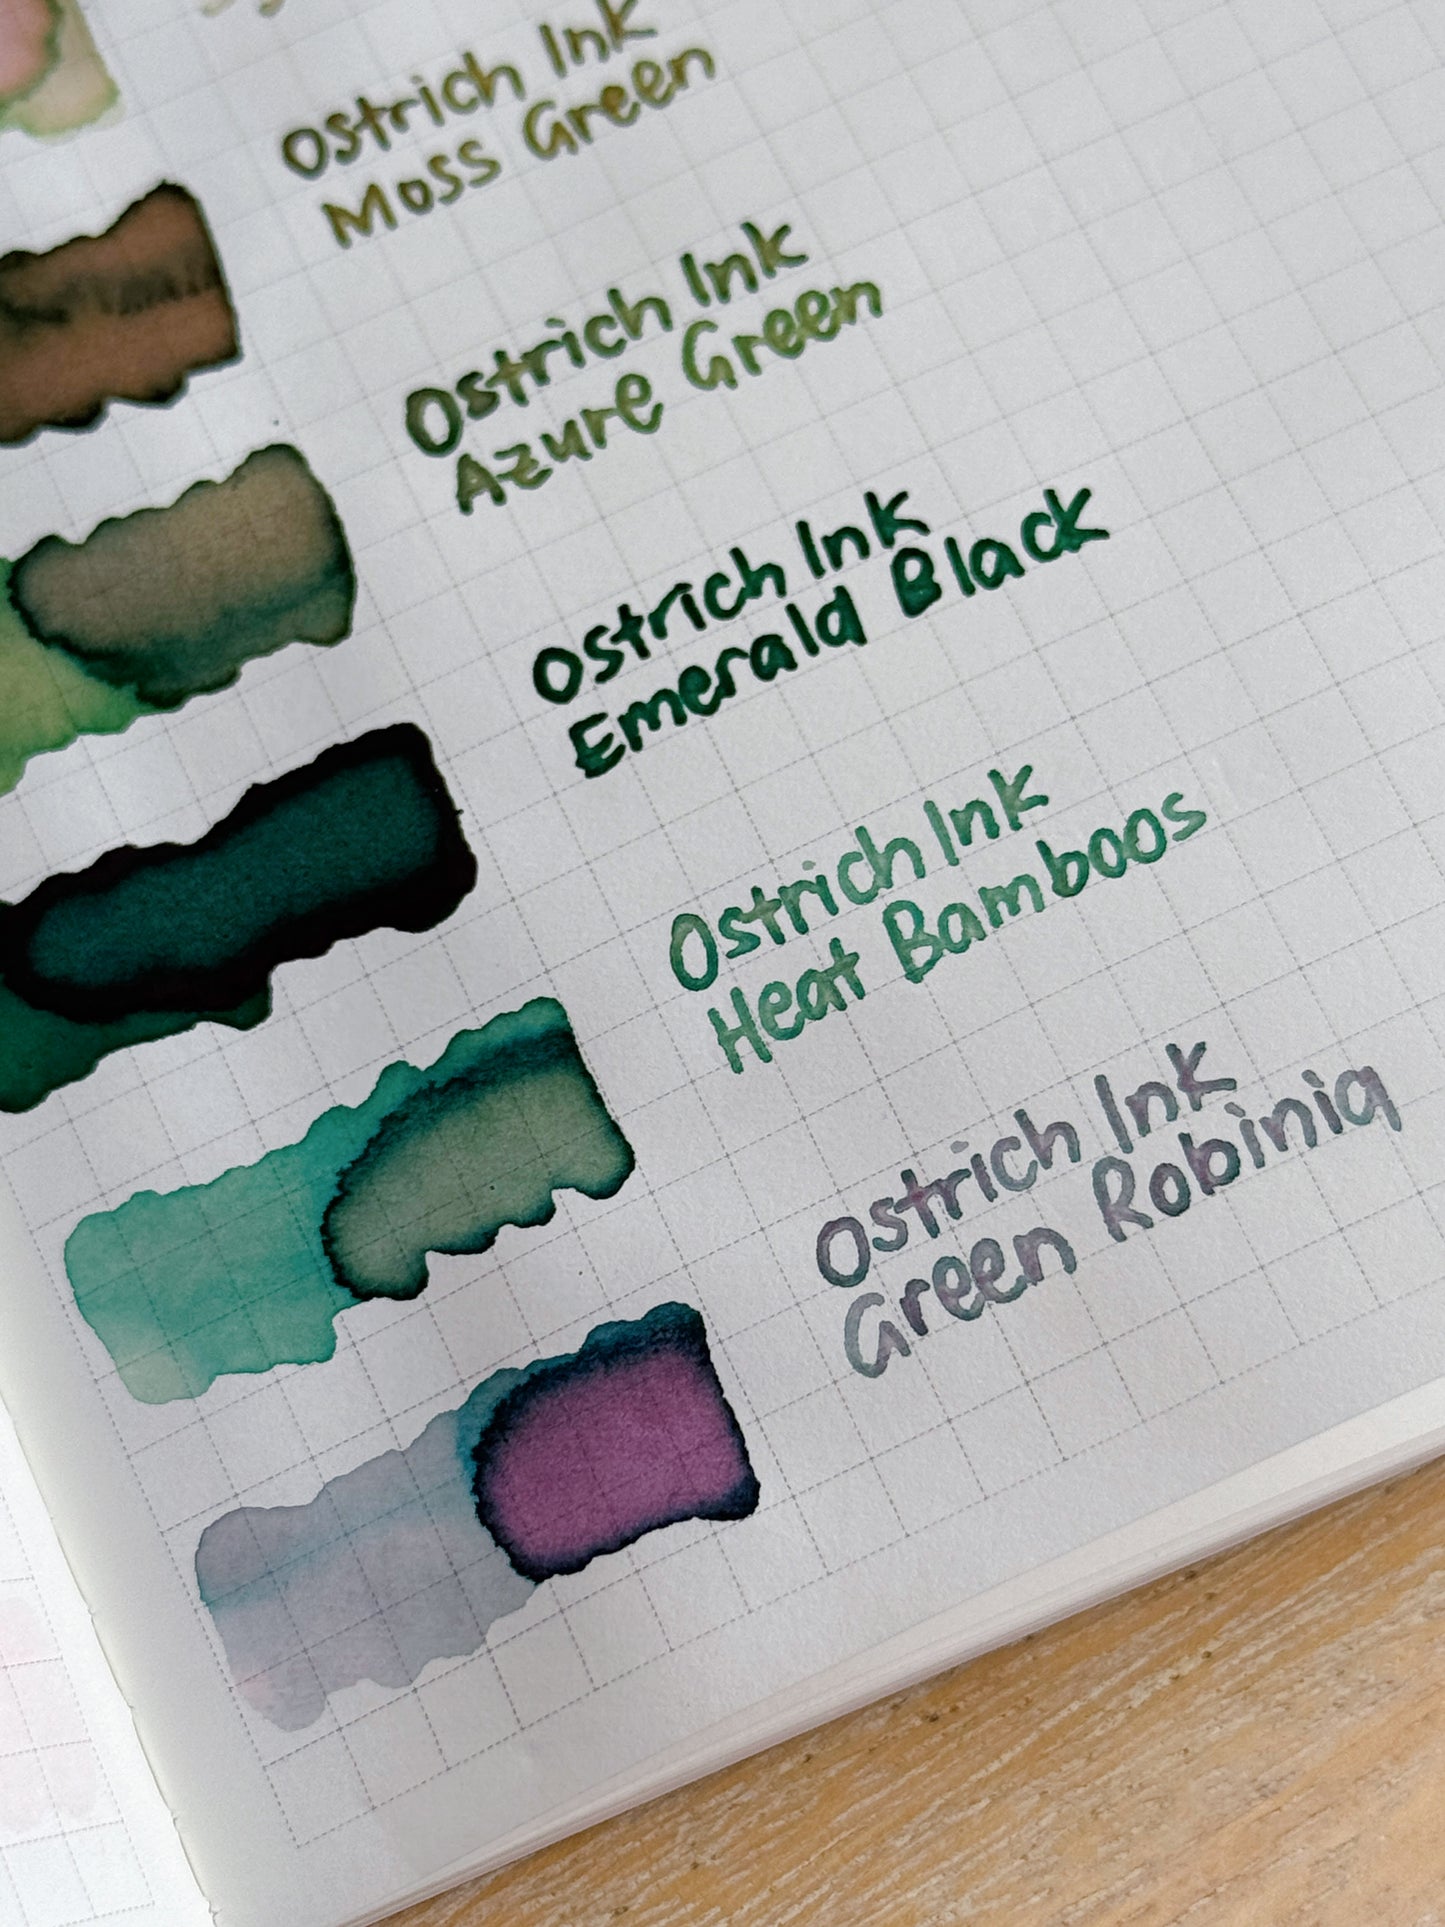 Ostrich Ink
Moss Green
Ostrich Ink
Azure Green
Ostrich Ink
Emerald Black
Ostrich Ink
Heat Bamboos
Ostrich Ink
Green Robinia